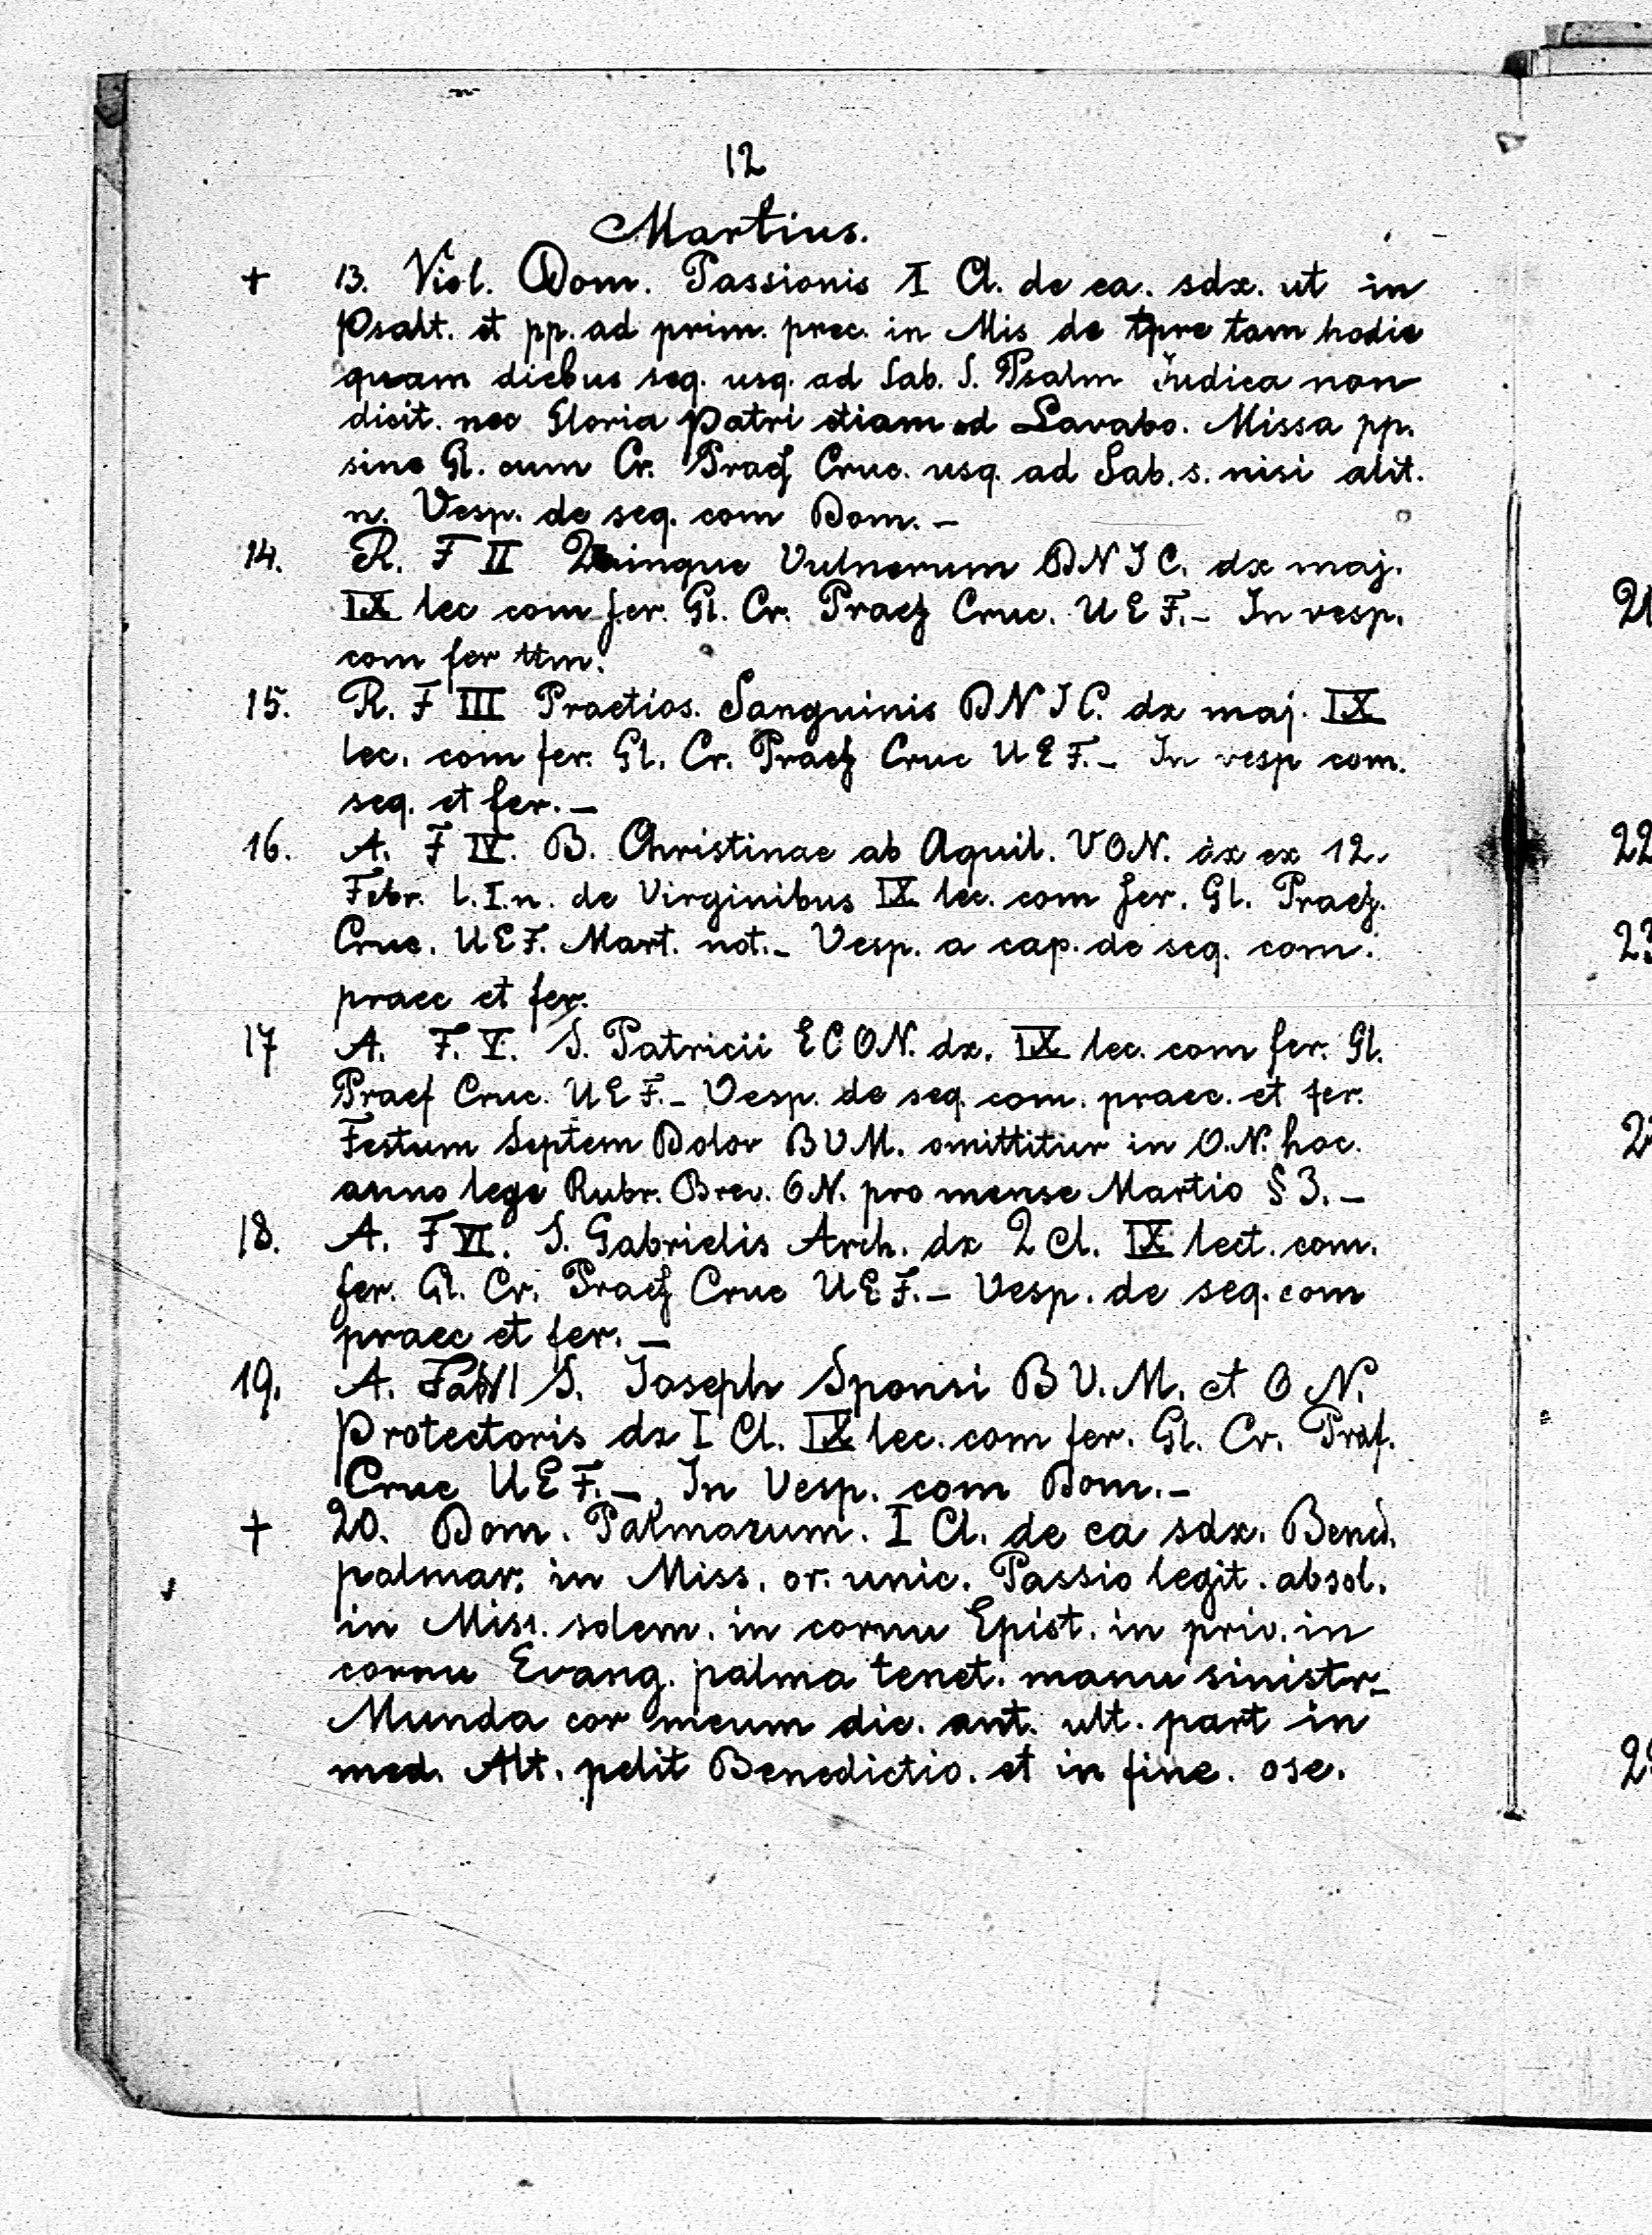 12
Martius.
+ 13. Viol. Dom. Passionis I Cl. de ea. sdx. ut in
Psalt. et pp. ad prim. prec. in Mis de tpre tam hodie
quam diebus seq. usq. ad Sab. S. Psalm Judica non
dicit. nec Gloria Patri etiam ad Lavabo. Missa pp.
sine Gl. cum Cr. Praef Cruc. usq. ad Sab. s. nisi alit.
n. Vesp. de seq. com Dom. –
14. R. F II Quinque Vulnerum DN JC. dx maj.
IX lec com fer. Gl. Cr. Praef Cruc. U E F. – In vesp.
com fer ttm.
15. R. F III Praetios. Sanguinis DN J C. dx maj. IX
lec. com fer. Gl. Cr. Praef Cruc U E F. – In vesp com.
seq. et fer. –
16. A. F IV. B. Christinae ab Aquil. V ON. dx ex 12.
Febr. l. I. n. de Virginibus IX lec. com fer. Gl. Praef.
Cruc. U E F. Mart. not. – Vesp. a cap. de seq. com.
praec et fer.
17 A. F. V. S. Patricii E C ON. dx. IX lec. com fer. Gl.
Praef Cruc. U E F. – Vesp. de seq. com. praec. et fer.
Festum Septem Dolor B V M. omittitur in O. N. hoc.
anno lege Rubr. Brev. O N. pro mense Martio § 3. –
18. A. F VI. S. Gabrielis Arch. dx 2 Cl. IX lect. com.
fer. Gl. Cr. Praef Cruc U E F. – Vesp. de seq. com
praec et fer. –
19. A. S. Joseph Sponsi B V. M. et O N.
Protectoris dx I Cl. IX lec. com fer. Gl. Cr. Praf.
Cruc U E F. – In Vesp. com Dom. –
+ 20. Dom. Palmarum. I Cl. de ea sdx. Bened.
palmar. in Miss. or. unic. Passio legit. absol.
in Miss. solem. in cornu Epist. in priv. in
cornu Evang. palma tenet. manu sinistr–
Munda cor meum dic. ant. ult. part in
med. Alt. petit Benedictio. et in fine. osc.
21
22
23